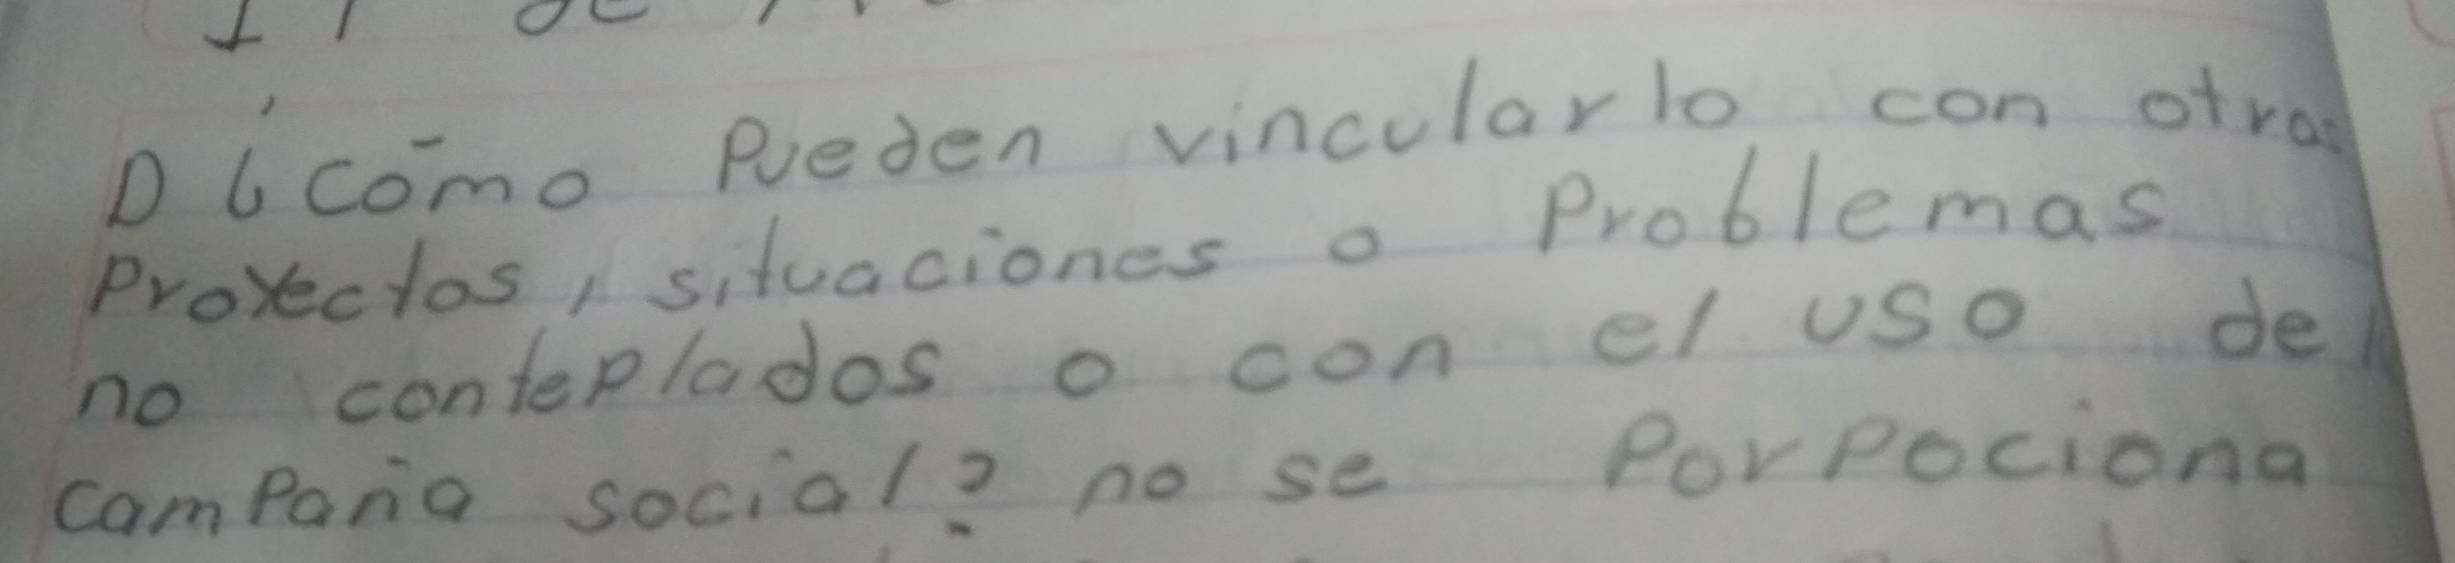 D ¿cómo Pueden vincularlo con otras
Proyectos, situaciones o Problemas
no conteplados o con el uso del
campaña social? no se Porpociona